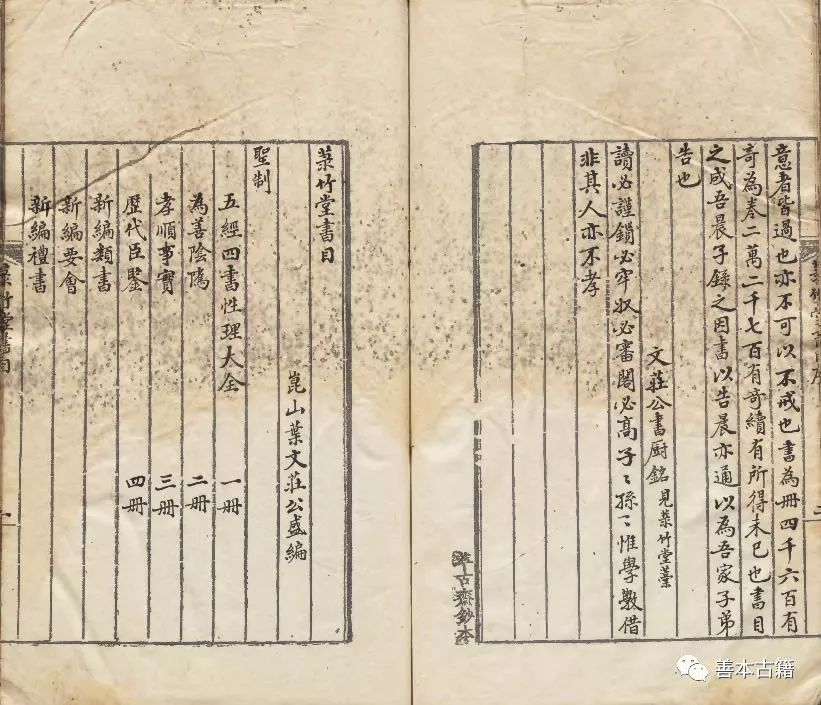 意者皆過也亦不可以不戒也書為冊四千六百有
奇為卷二萬二千七百有奇續有所得未已也書目
之成吾晨子錄之因書以告晨亦通以為吾家子弟
告也
文莊公書厨銘 見菉竹堂藁
讀必謹鎖必牢收必審閣必高子〻孫〻惟學斅借
非其人亦不孝
菉竹堂書目
崑山葉文莊公盛編
聖制
五經四書性理大全 一冊
為善陰隲 二冊
孝順事實 三冊
歷代臣鑒 四冊
新編類書
新編要會
新編禮書
菉竹堂書目
善本古籍